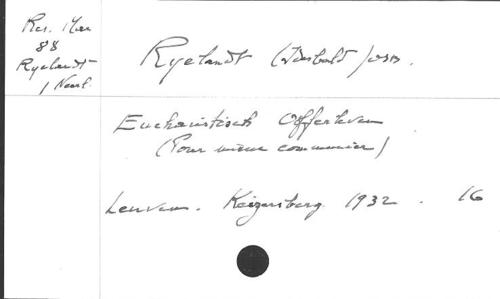 Res. Mag
88
Ryelandt
/ Neerl.
Ryelandt (Idesbald) OSB.
Eucharistisch Offerleven
(Pour mieux communier)
Leuven. Keizersberg. 1932. 16